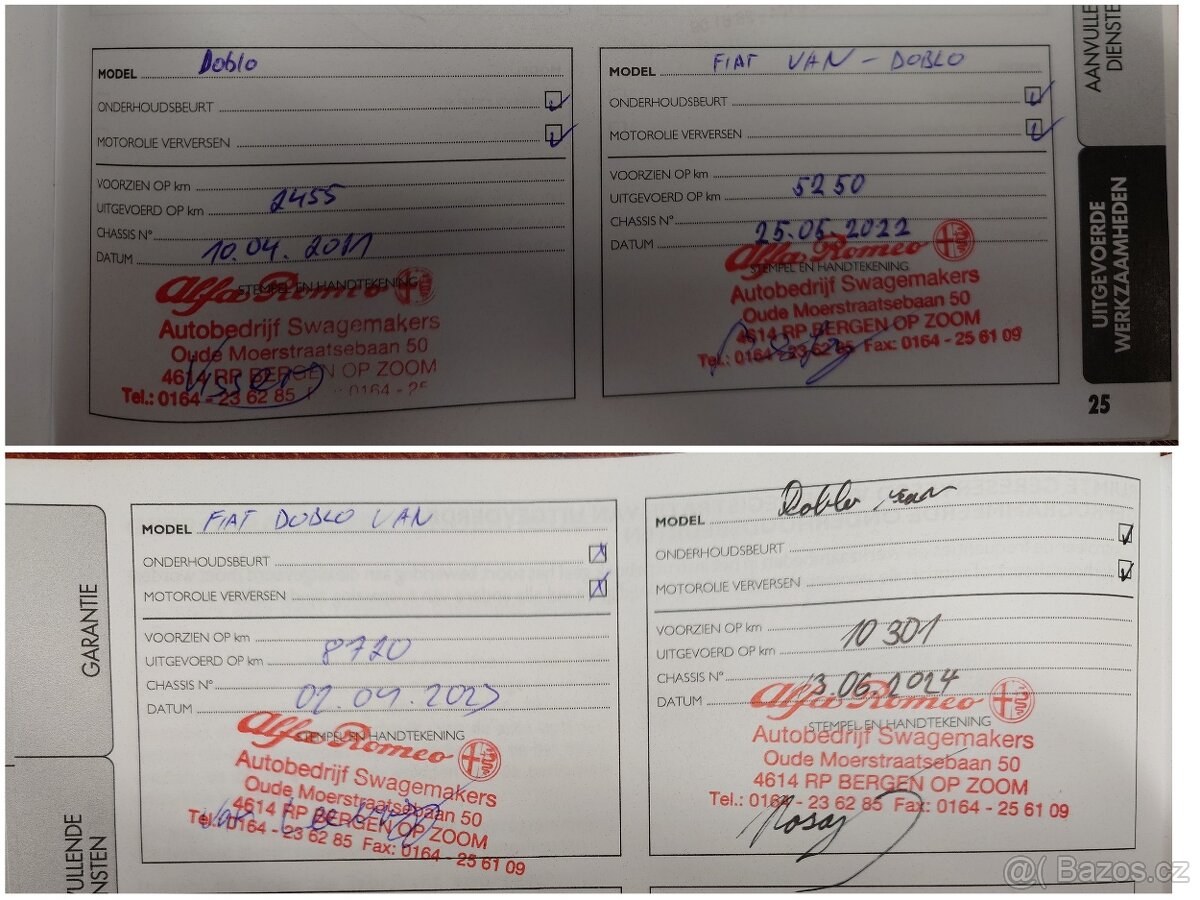 AANVULLE
DIENSTE
MODEL Doblo
ONDERHOUDSBEURT
MOTOROLIE VERVERSEN
VOORZIEN OP km
UITGEVOERD OP km 2455
CHASSIS N°
DATUM 10.04.2021
STEMPEL EN HANDTEKENING
Alfa Romeo
Autobedrijf Swagemakers
Oude Moerstraatsebaan 50
4614 RP BERGEN OP ZOOM
Tel.: 0164 - 23 62 85 0164 - 25
MODEL FIAT VAN - DOBLO
ONDERHOUDSBEURT
MOTOROLIE VERVERSEN
VOORZIEN OP km
UITGEVOERD OP km 5250
CHASSIS N°
DATUM 25.05.2022
STEMPEL EN HANDTEKENING
Alfa Romeo
Autobedrijf Swagemakers
Oude Moerstraatsebaan 50
4614 RP BERGEN OP ZOOM
Tel.: 0164 - 23 62 85 Fax: 0164 - 25 61 09
UITGEVOERDE
WERKZAAMHEDEN
25
GARANTIE
VULLENDE
NSTEN
MODEL FIAT DOBLO VAN
ONDERHOUDSBEURT
MOTOROLIE VERVERSEN
VOORZIEN OP km
UITGEVOERD OP km 8720
CHASSIS N°
DATUM 02.04.2023
STEMPEL EN HANDTEKENING
Alfa Romeo
Autobedrijf Swagemakers
Oude Moerstraatsebaan 50
4614 RP BERGEN OP ZOOM
Tel.: 0164 - 23 62 85 Fax: 0164 - 25 61 09
MODEL Doblo van
ONDERHOUDSBEURT
MOTOROLIE VERVERSEN
VOORZIEN OP km
UITGEVOERD OP km 10 301
CHASSIS N°
DATUM 13.06.2024
STEMPEL EN HANDTEKENING
Alfa Romeo
Autobedrijf Swagemakers
Oude Moerstraatsebaan 50
4614 RP BERGEN OP ZOOM
Tel.: 0164 - 23 62 85 Fax: 0164 - 25 61 09
Bazos.cz